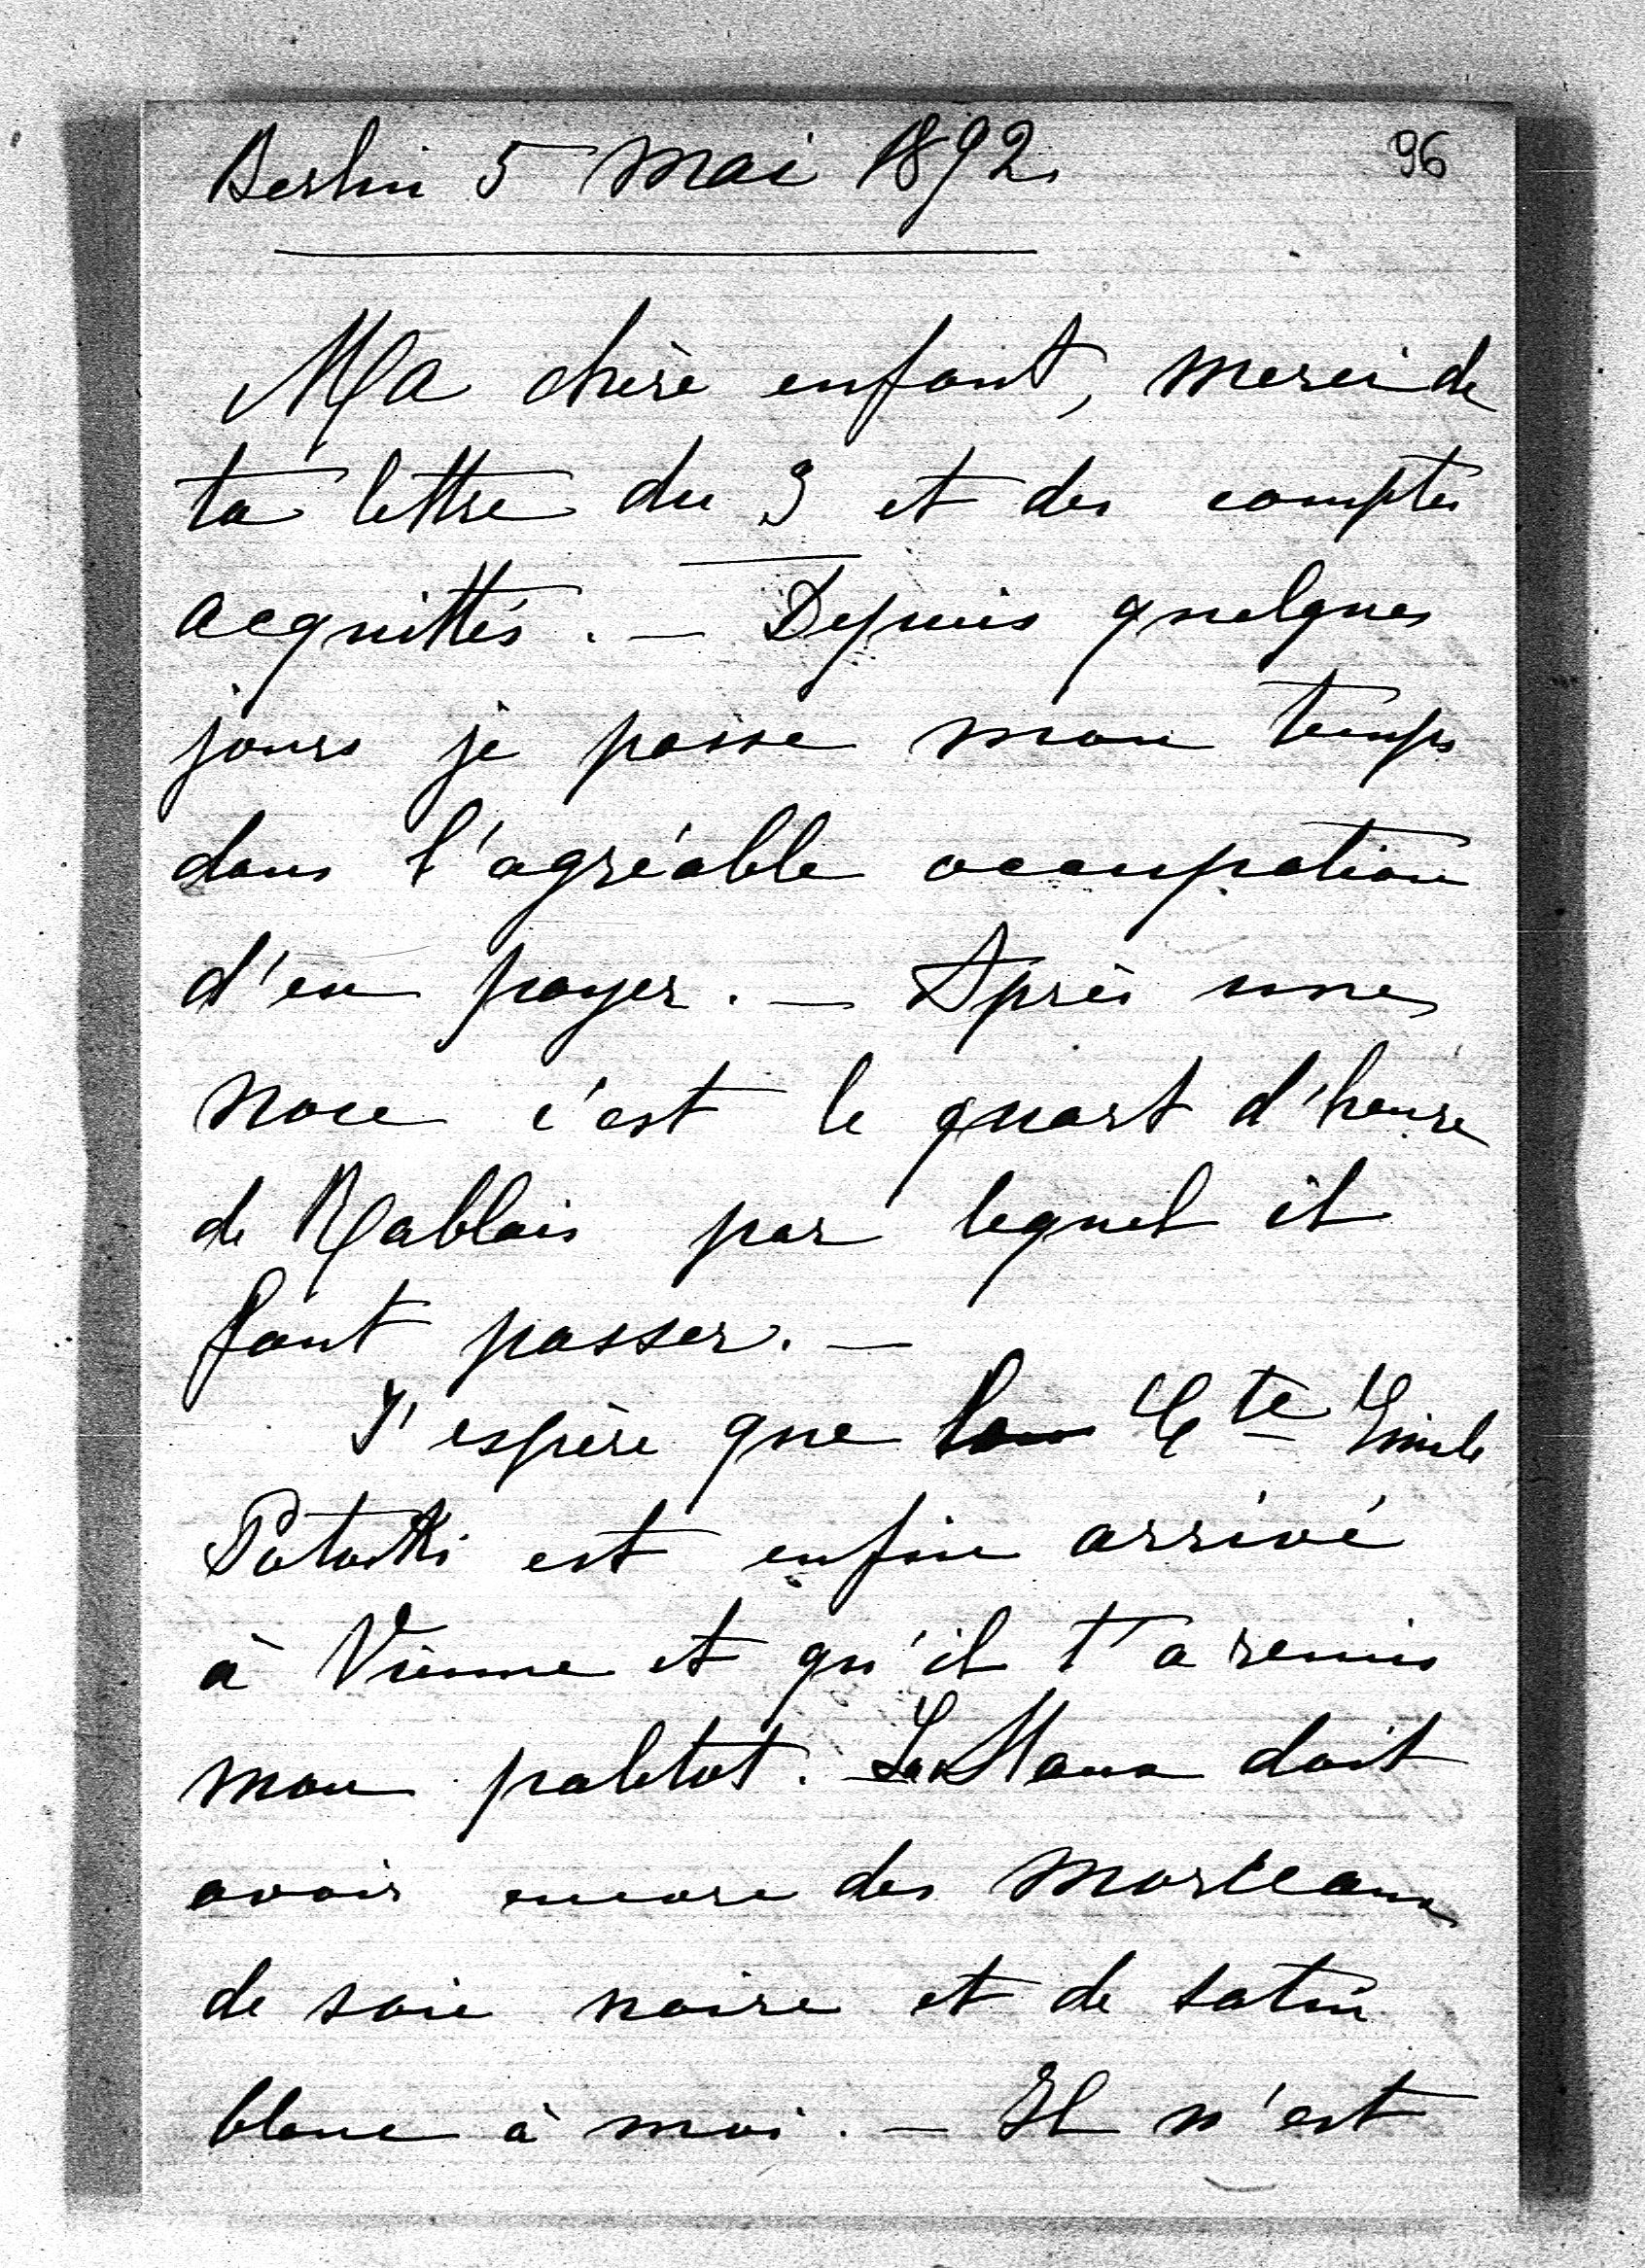 Berlin 5 mai 1892.
96
Ma chère enfant, merci de
ta lettre du 3 et des comptes
acquittés. — Depuis quelques
jours je passe mon temps
dans l'agréable occupation
d'en payer. — Après une
noce c'est le quart d'heure
de Rablais par lequel il
faut passer. —
J'espère que Cte Emile
Potocki est enfin arrivé
à Vienne et qu'il t'a remis
mon paletot. La doit
avoir encore des morceaux
de soie noire et de satin
blanc à moi. — Il n'est